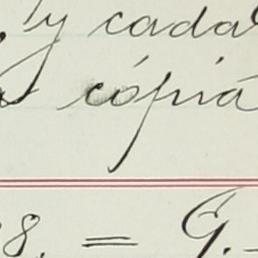 y cada
cópia
8. = G.